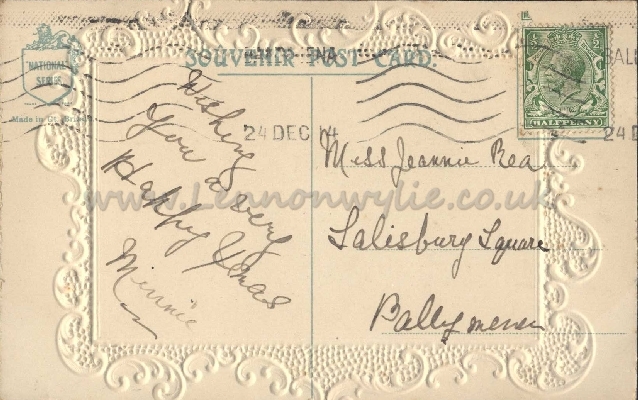 SOUVENIR POST CARD.
NATIONAL
SERIES
Made in Gt. Britain
24 DEC 14
BAL
24 D
HALFPENNY
Wishing
You a very
Happy Xmas
Minnie
Miss Jeannie Rea
Salisbury Square
Ballymena
www.Lennonwylie.co.uk